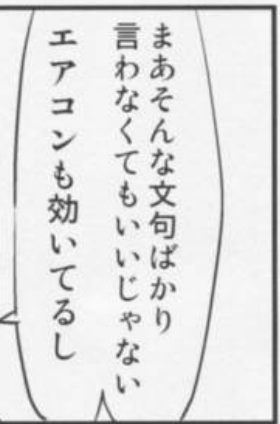 まあそんな文句ばかり
言わなくてもいいじゃない
エアコンも効いてるし